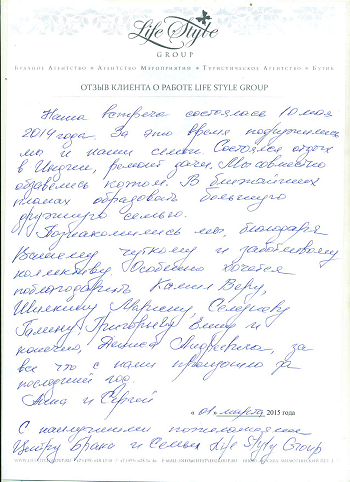 Life Style
GROUP
Брачное Агентство • Агентство Мероприятий • Туристическое Агентство • Бутик
ОТЗЫВ КЛИЕНТА О РАБОТЕ LIFE STYLE GROUP
Наша встреча состоялась 10 мая
2014 года. За это время подружились
мы и наши семьи. Состоялся отдых
в Индии, ремонт дачи. Мы совместно
обзавелись котом. В ближайших
планах образовать большую
дружную семью.
Познакомились мы, благодаря
Вашему чуткому и заботливому
коллективу. Особенно хочется
поблагодарить Веру,
Марину,
Галину, Григорьеву Елену и
конечно, Андреевича, за
все что с нами произошло за
последний год.
Анна и Сергей
« 01 » марта 2015 года
С наилучшими пожеланиями
Центру Брака и Семьи Life Style Group